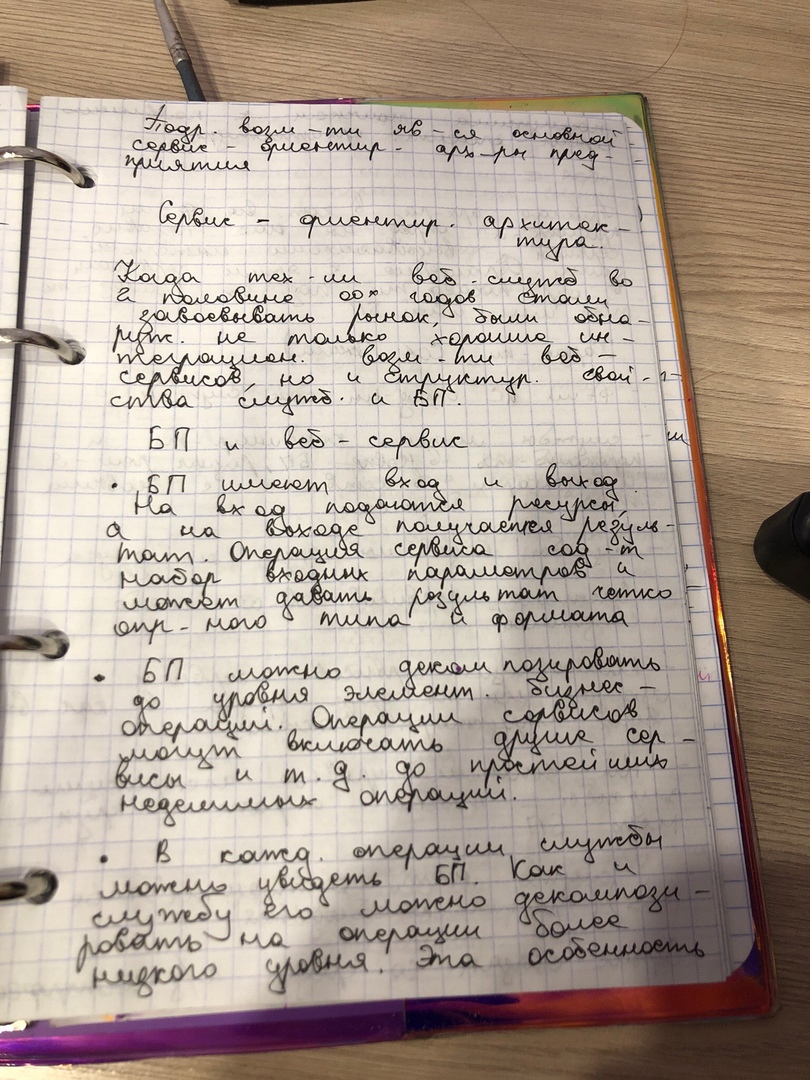 Подр. возм-ти яв-ся основной
сервис-ориентир. арх-ры пред-
приятия
Сервис - ориентир. архитек-
тура.
Когда тех-ии веб-служб во
2 половине 00х годов стали
завоевывать рынок, были обна-
руж. не только хорошие ин-
теграцион. возм-ти веб-
сервисов, но и структур. свой-
ства служб и БП.
БП и веб-сервис
• БП имеют вход и выход.
На вход подаются ресурсы,
а на выходе получается резуль-
тат. Операция сервиса сод-т
набор входных параметров и
может давать результат четко
опр-ного типа и формата
• БП можно декомпозировать
до уровня элемент. бизнес-
операций. Операции сервисов
могут включать другие сер-
висы и т.д. до простейших
неделимых операций.
• В кажд. операции службы
можно увидеть БП. Как и
службу его можно декомпози-
ровать на операции более
низкого уровня. Эта особенность